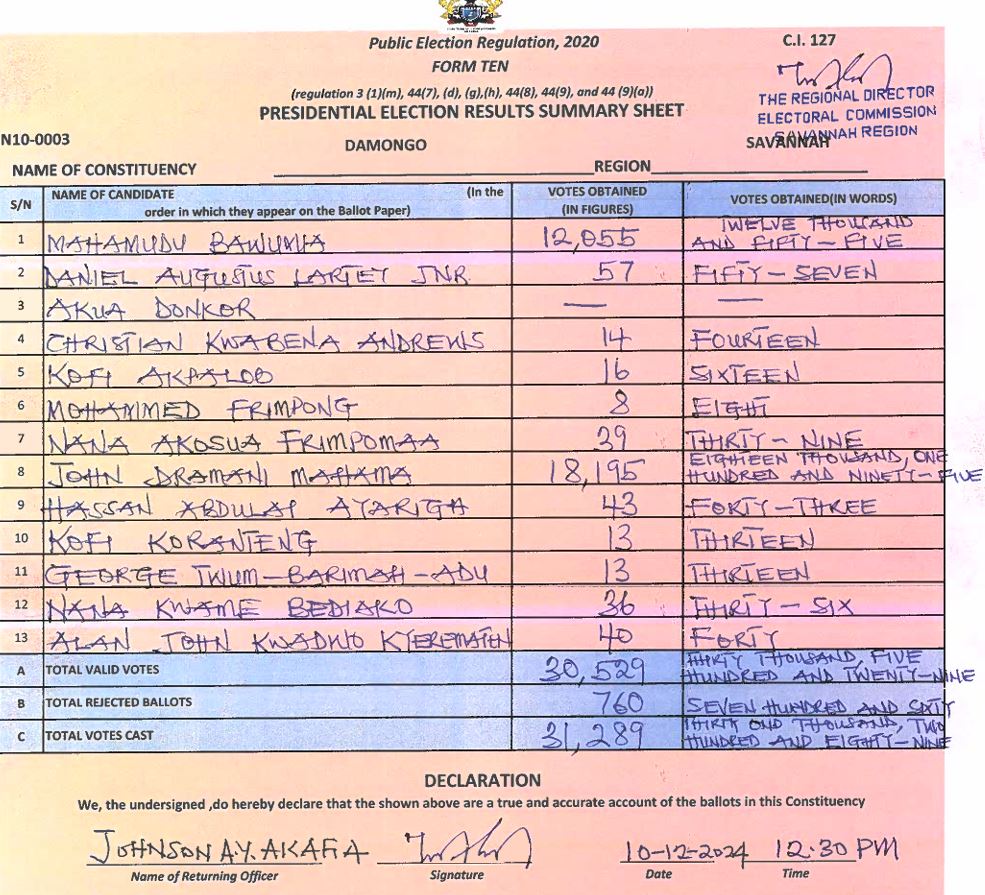 Public Election Regulation, 2020
C.I. 127
FORM TEN
(regulation 3 (1)(m), 44(7), (d), (g),(h), 44(8), 44(9), and 44 (9)(a))
PRESIDENTIAL ELECTION RESULTS SUMMARY SHEET
THE REGIONAL DIRECTOR
ELECTORAL COMMISSION
SAVANNAH REGION
N10-0003 DAMONGO SAVANNAH
NAME OF CONSTITUENCY REGION
S/N NAME OF CANDIDATE (In the order in which they appear on the Ballot Paper) VOTES OBTAINED (IN FIGURES) VOTES OBTAINED(IN WORDS)
1 MAHAMUDU BAWUMIA 12,055 TWELVE THOUSAND AND FIFTY-FIVE
2 DANIEL AUGUSTUS LARTEY JNR 57 FIFTY-SEVEN
3 AKUA DONKOR — —
4 CHRISTIAN KWABENA ANDREWS 14 FOURTEEN
5 KOFI AKPALOO 16 SIXTEEN
6 MOHAMMED FRIMPONG 8 EIGHT
7 NANA AKOSUA FRIMPOMAA 39 THIRTY-NINE
8 JOHN DRAMANI MAHAMA 18,195 EIGHTEEN THOUSAND, ONE HUNDRED AND NINETY-FIVE
9 HASSAN ABDULAI AYARIGA 43 FORTY-THREE
10 KOFI KORANTENG 13 THIRTEEN
11 GEORGE TWUM-BARIMAH-ADU 13 THIRTEEN
12 NANA KWAME BEDIAKO 36 THIRTY-SIX
13 ALAN JOHN KWADWO KYEREMATEN 40 FORTY
A TOTAL VALID VOTES 30,529 THIRTY THOUSAND, FIVE HUNDRED AND TWENTY-NINE
B TOTAL REJECTED BALLOTS 760 SEVEN HUNDRED AND SIXTY
C TOTAL VOTES CAST 31,289 THIRTY ONE THOUSAND, TWO HUNDRED AND EIGHTY-NINE
DECLARATION
We, the undersigned ,do hereby declare that the shown above are a true and accurate account of the ballots in this Constituency
JOHNSON A.Y. AKAFIA 10-12-2024 12:30 PM
Name of Returning Officer Signature Date Time